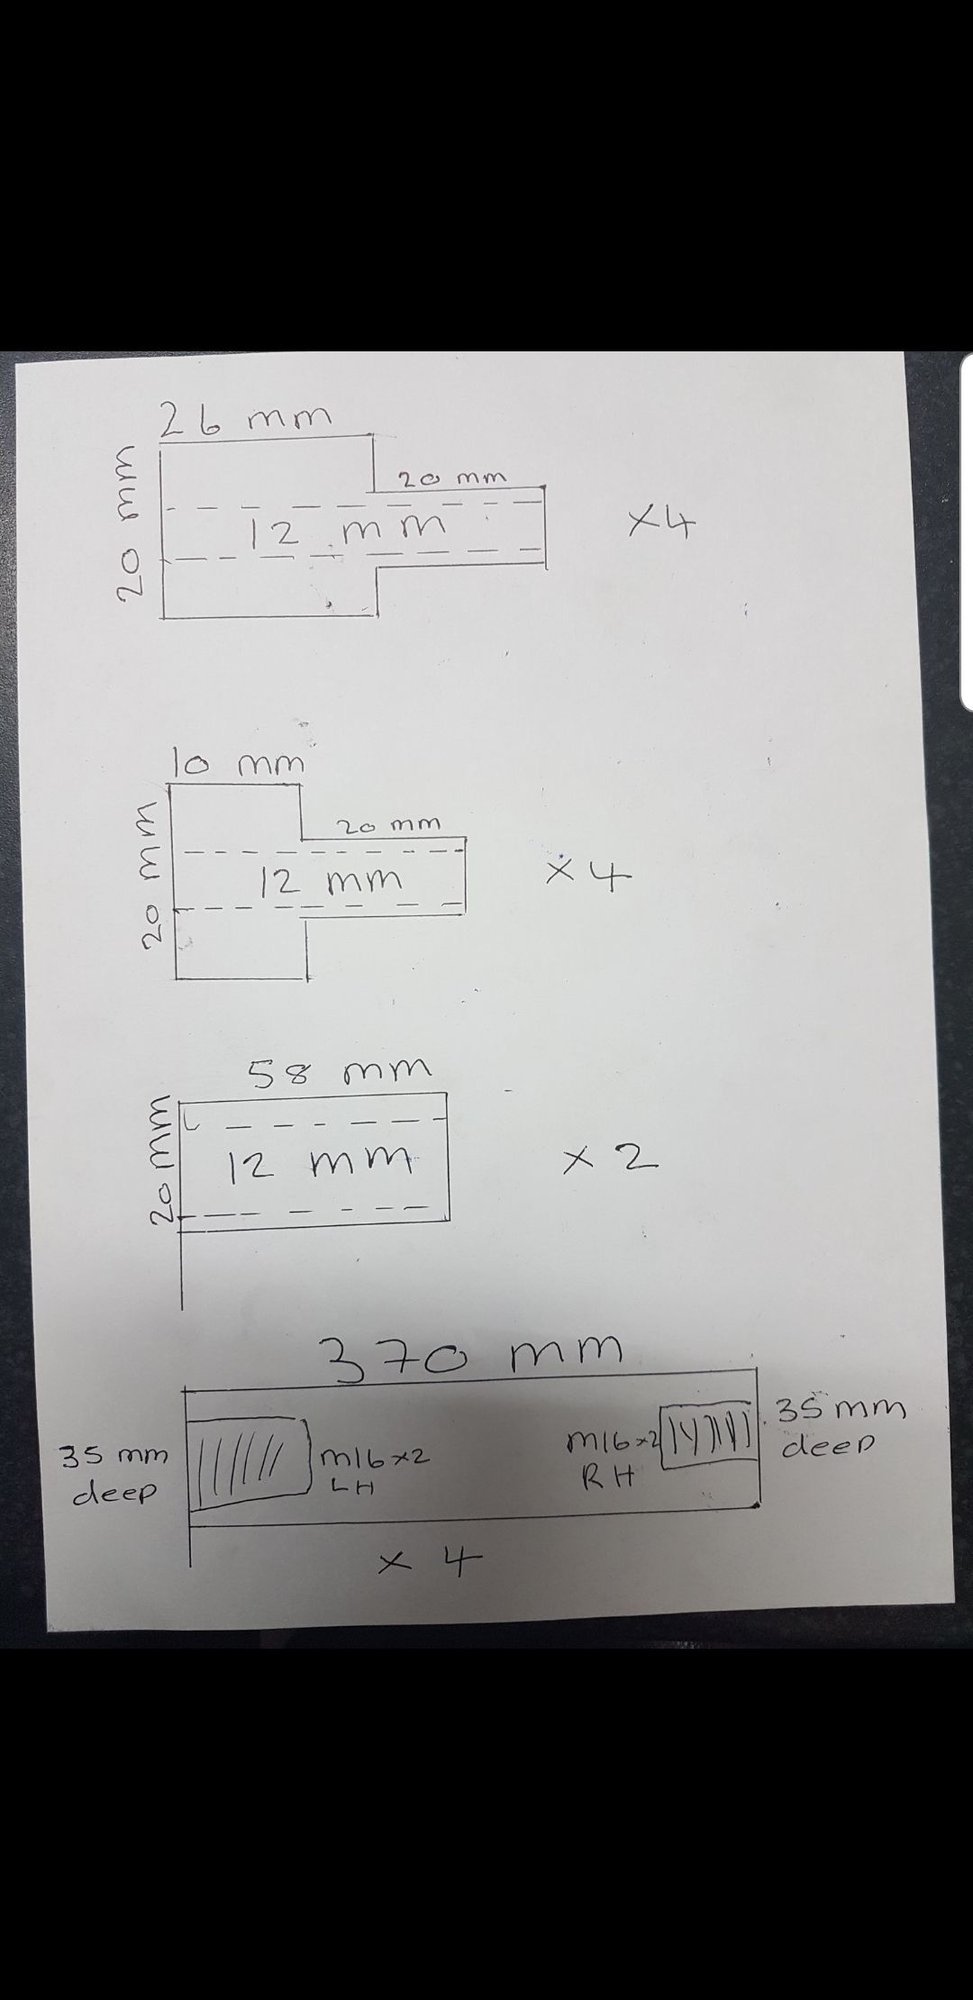 26 mm
20 mm
20 mm
12 mm
x4
10 mm
20 mm
20 mm
12 mm
x 4
58 mm
20 mm
12 mm
x 2
370 mm
35 mm
deep
m16x2
LH
m16x2
RH
35 mm
deep
x 4